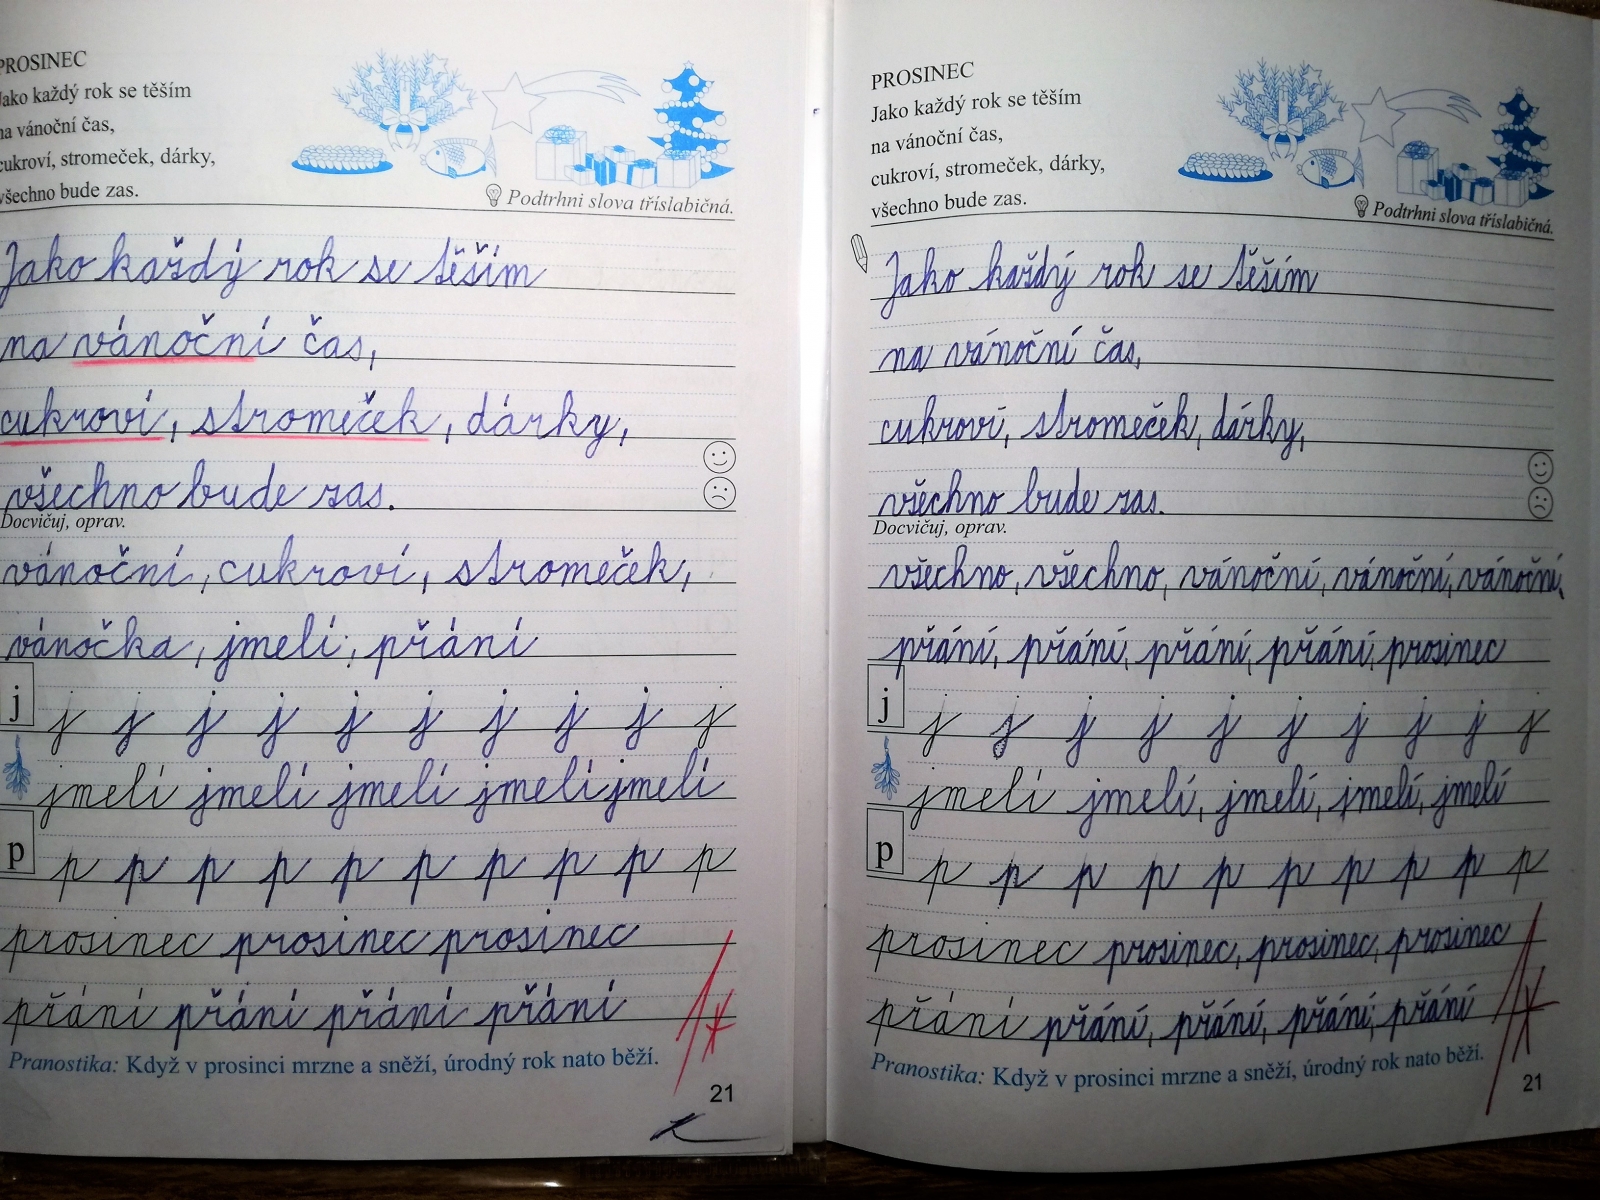 PROSINEC
Jako každý rok se těším
na vánoční čas,
cukroví, stromeček, dárky,
všechno bude zas.
Podtrhni slova tříslabičná.
Jako každý rok se těším
na vánoční čas,
cukroví, stromeček, dárky,
všechno bude zas.
Docvičuj, oprav.
vánoční, cukroví, stromeček,
vánočka, jmelí, přání
j
j j j j j j j j j j
jmelí jmelí jmelí jmelí jmelí
p
p p p p p p p p p p
prosinec prosinec prosinec
přání přání přání přání
Pranostika: Když v prosinci mrzne a sněží, úrodný rok nato běží.
21
PROSINEC
Jako každý rok se těším
na vánoční čas,
cukroví, stromeček, dárky,
všechno bude zas.
Podtrhni slova tříslabičná.
Jako každý rok se těším
na vánoční čas,
cukroví, stromeček, dárky,
všechno bude zas.
Docvičuj, oprav.
všechno, všechno, vánoční, vánoční, vánoční,
přání, přání, přání, přání, prosinec
j
j j j j j j j j j j
jmelí jmelí, jmelí, jmelí, jmelí
p
p p p p p p p p p p
prosinec prosinec, prosinec, prosinec
přání přání, přání, přání, přání
Pranostika: Když v prosinci mrzne a sněží, úrodný rok nato běží.
21